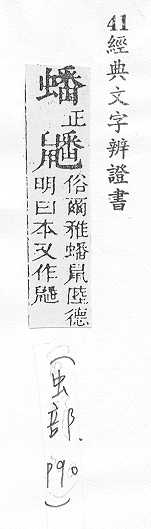 41經典文字辨證書
蟠正䶕俗爾雅蟠鼠陸德
明曰本又作䶕
(虫部.P90)